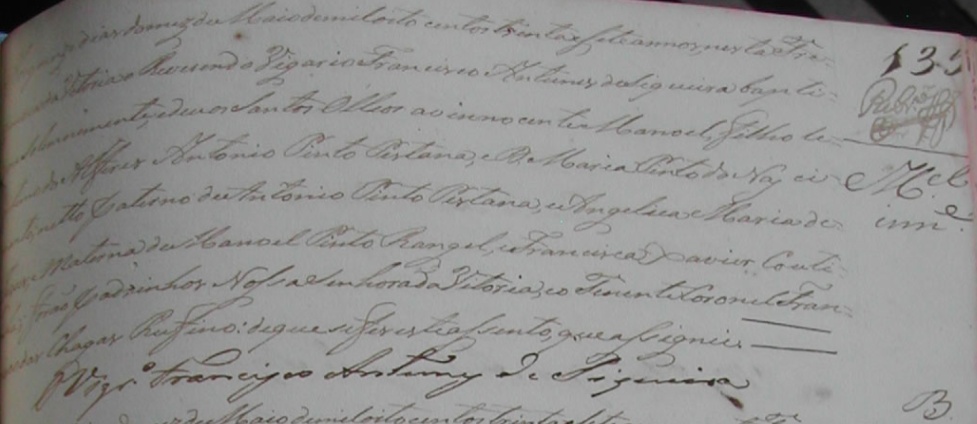 dias do mez de Maio de mil oito centos trinta e sete annos nesta Fre-
da Vitoria o Reverendo Vigario Francisco Antunes de Siqueira bapti-
solenemente, e deu os Santos Olleos ao innocente Manoel, filho le-
do Alferes Antonio Pinto Pestana, e D. Maria Pinto do Nasci-
netto Paterno de Antonio Pinto Pestana, e Angelica Maria de
e Materno de Manoel Pinto Rangel, e Francisca Xavier Couti-
forão Padrinhos Nossa Senhora da Vitoria, e o Tenente Coronel Fran-
das Chagas Ruffino: de que se fez este assento, que assignei.
O Vigr.o Francisco Antunes de Siqueira
de Maio de mil oito centos trinta e sete
Rubr.
M.el
inn.e
B